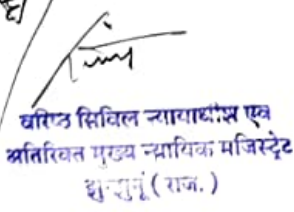 वरिष्ठ सिविल न्यायाधीश एवं
अतिरिक्त मुख्य न्यायिक मजिस्ट्रेट
झुन्झुनूं ( राज. )